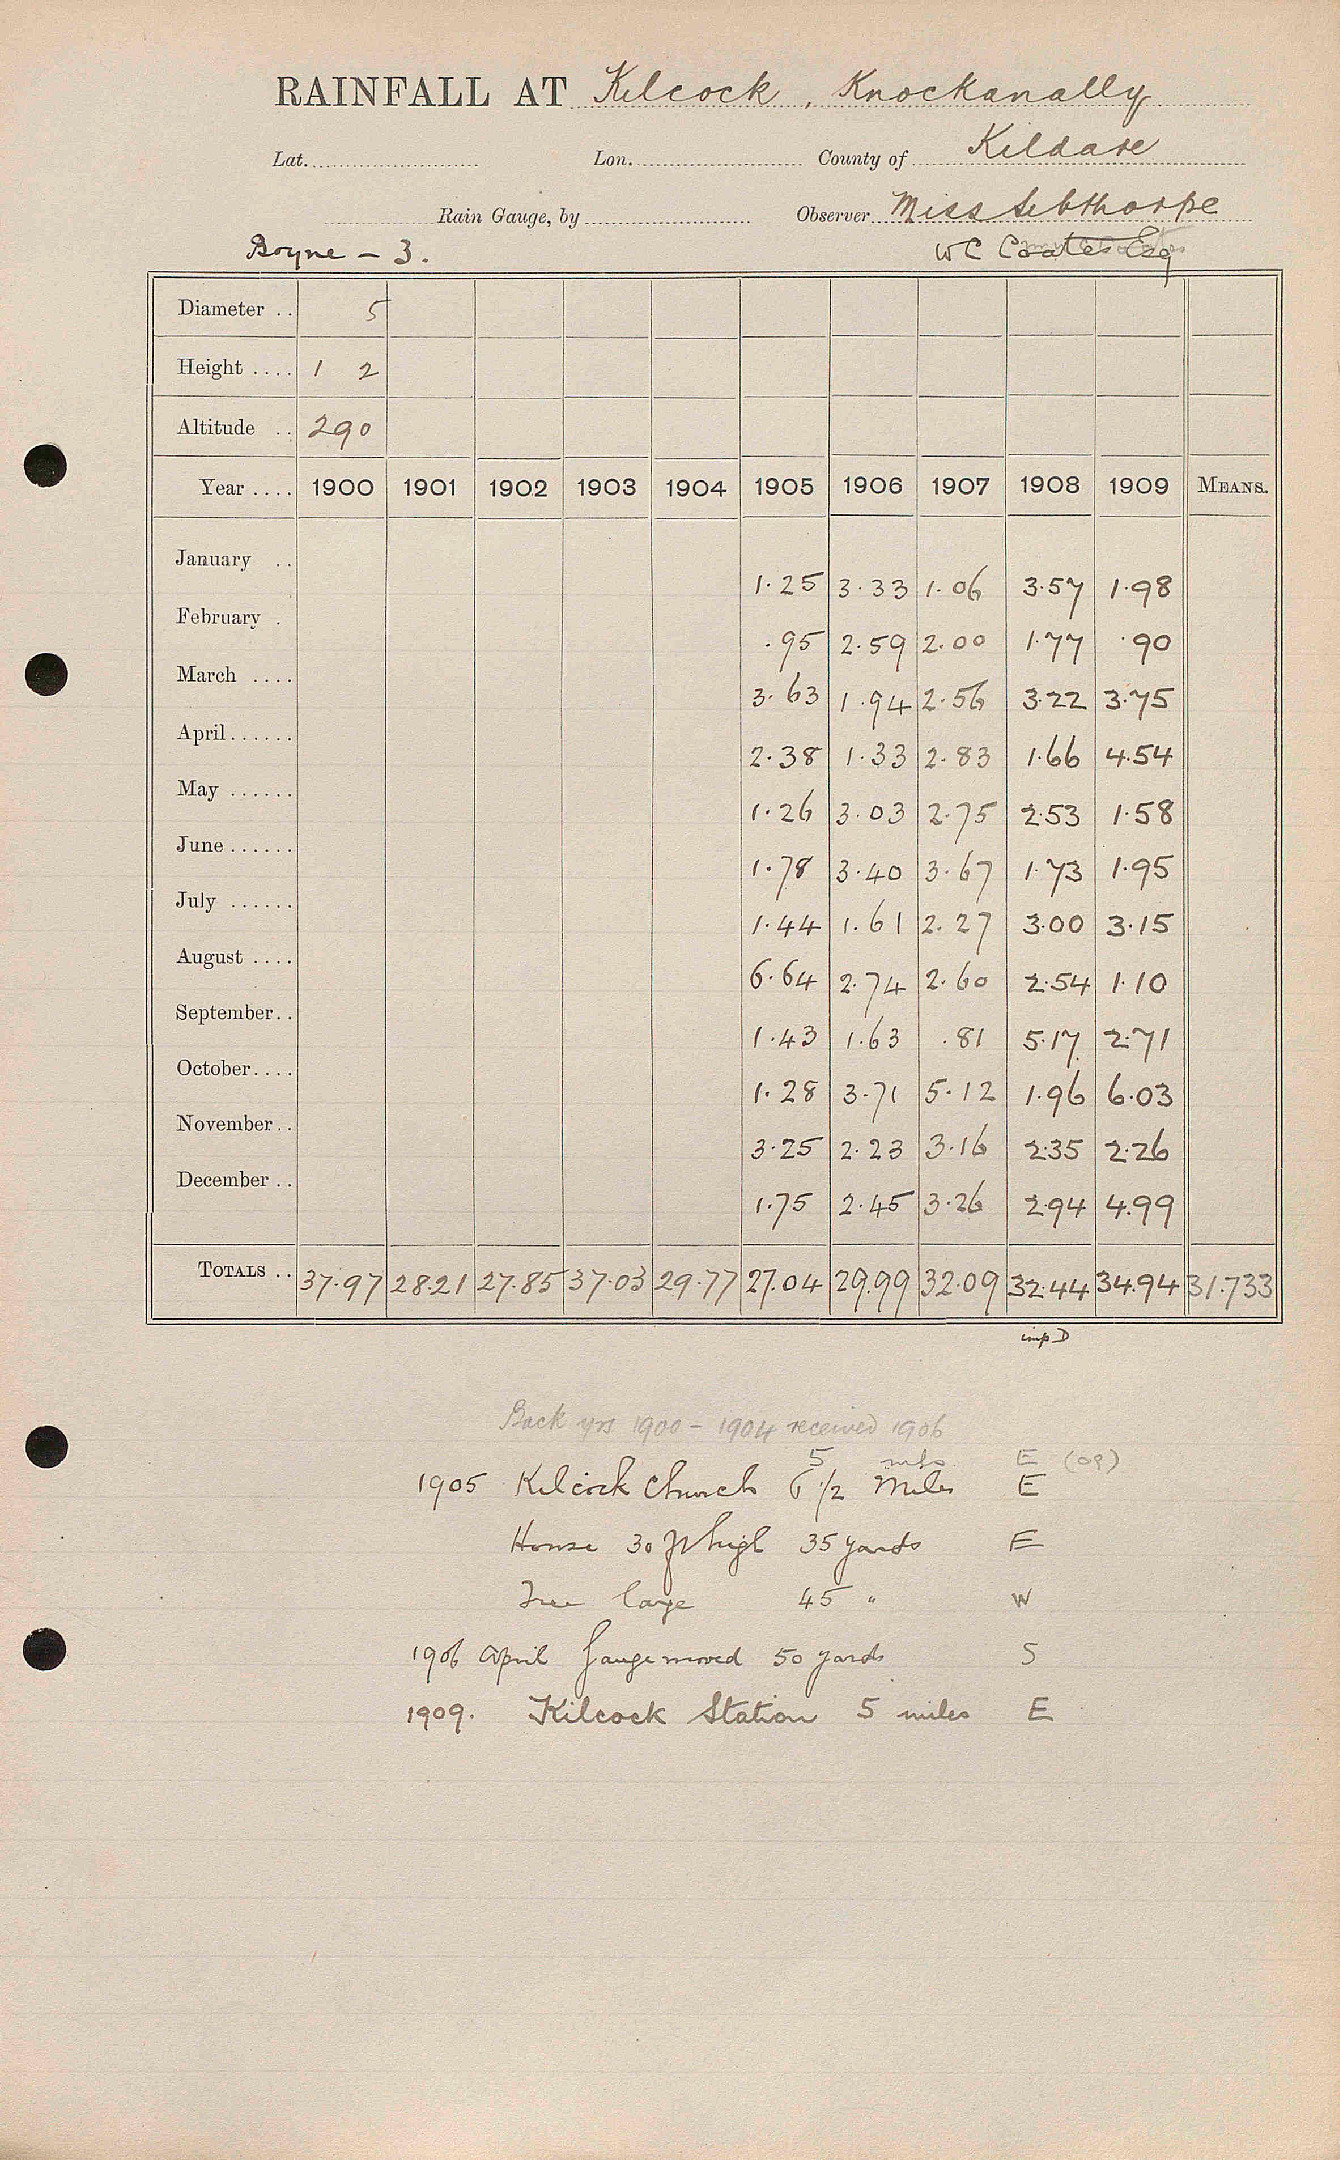 RAINFALL AT Kilcock, Knockanally
Lat. Lon. County of Kildare
Rain Gauge, by Observer Miss Sibthorpe
Boyne - 3. WC Coates Esq
Diameter .. 5
Height .... 1 2
Altitude .. 290
Year .... 1900 1901 1902 1903 1904 1905 1906 1907 1908 1909 MEANS.
January .. 1.25 3.33 1.06 3.57 1.98
February . .95 2.59 2.00 1.77 .90
March .... 3.63 1.94 2.56 3.22 3.75
April...... 2.38 1.33 2.83 1.66 4.54
May ...... 1.26 3.03 2.75 2.53 1.58
June...... 1.78 3.40 3.67 1.73 1.95
July ...... 1.44 1.61 2.27 3.00 3.15
August .... 6.64 2.74 2.60 2.54 1.10
September.. 1.43 1.63 .81 5.17 2.71
October.... 1.28 3.71 5.12 1.96 6.03
November.. 3.25 2.23 3.16 2.35 2.26
December .. 1.75 2.45 3.26 2.94 4.99
TOTALS .. 37.97 28.21 27.85 37.03 29.77 27.04 29.99 32.09 32.44 34.94 31.733
imp D
Back yrs 1900 - 1904 received 1906
5 mls E (09)
1905 Kilcock Church 6 1/2 Miles E
House 30 ft high 35 yards E
Tree large 45 " W
1906 April Gauge moved 50 yards S
1909. Kilcock Station 5 miles E